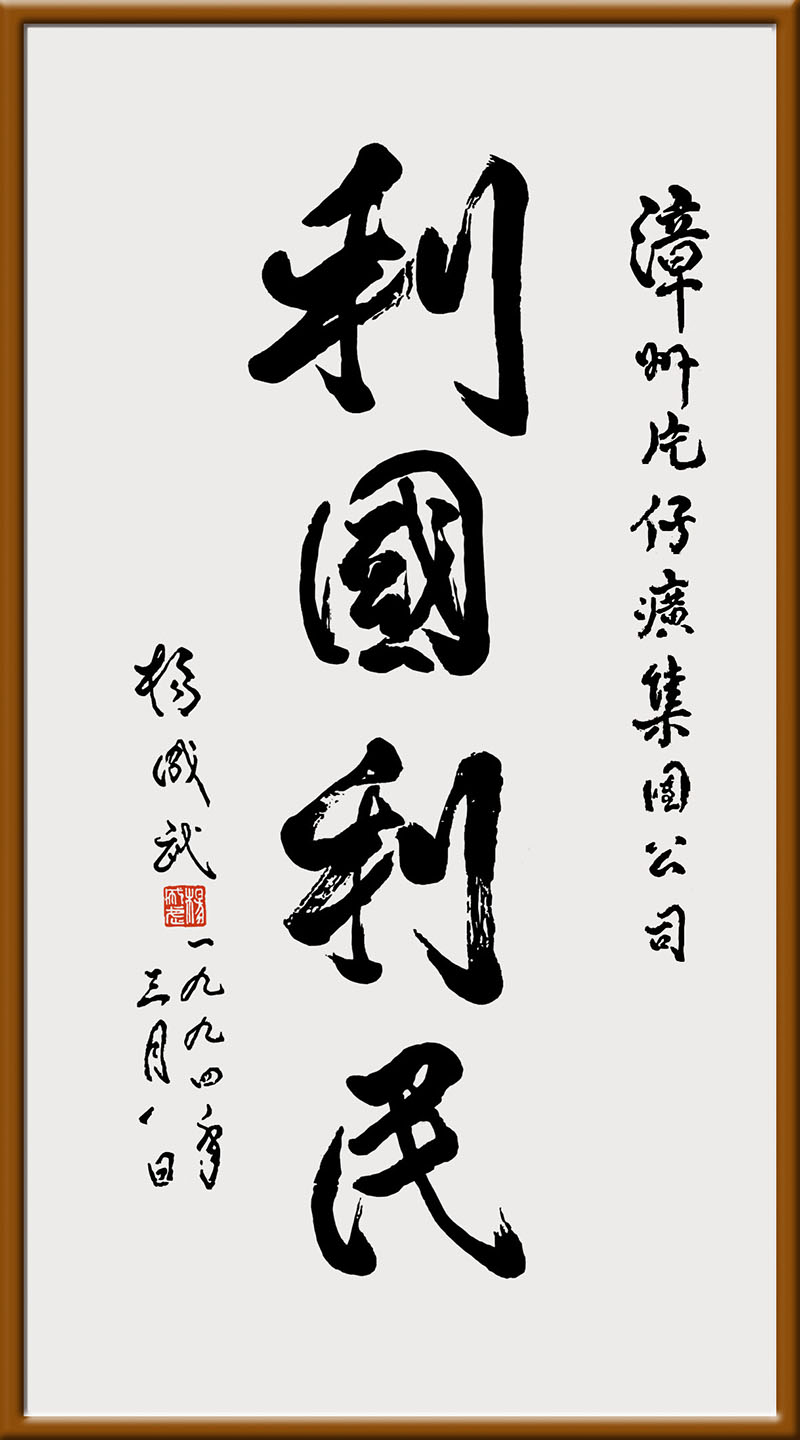 漳州片仔癀集团公司
利國利民
楊成武
一九九四年
三月八日